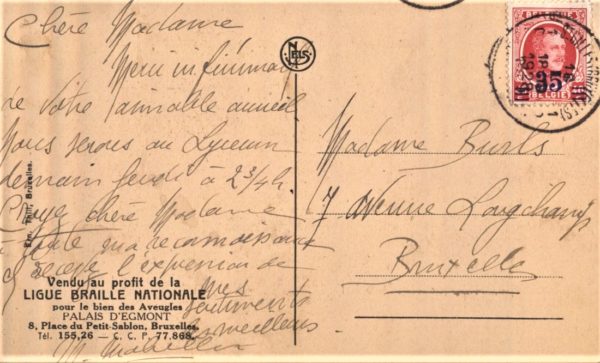 Chère Madame
Merci infiniment
de votre aimable accueil
Nous serons au Lyceum
demain jeudi à 2 3/4 h.
Croyez chère Madame
à toute ma reconnaissance
et l'expression de
mes
sentiments
les meilleurs
NELS
Exp. Thill, Bruxelles.
Vendu au profit de la
LIGUE BRAILLE NATIONALE
pour le bien des Aveugles
PALAIS D'EGMONT
8, Place du Petit-Sablon, Bruxelles.
Tél. 155,26 — C. C. P. 77.868.
35
BELGIE
Madame Burls
7 Avenue Longchamps
Bruxelles